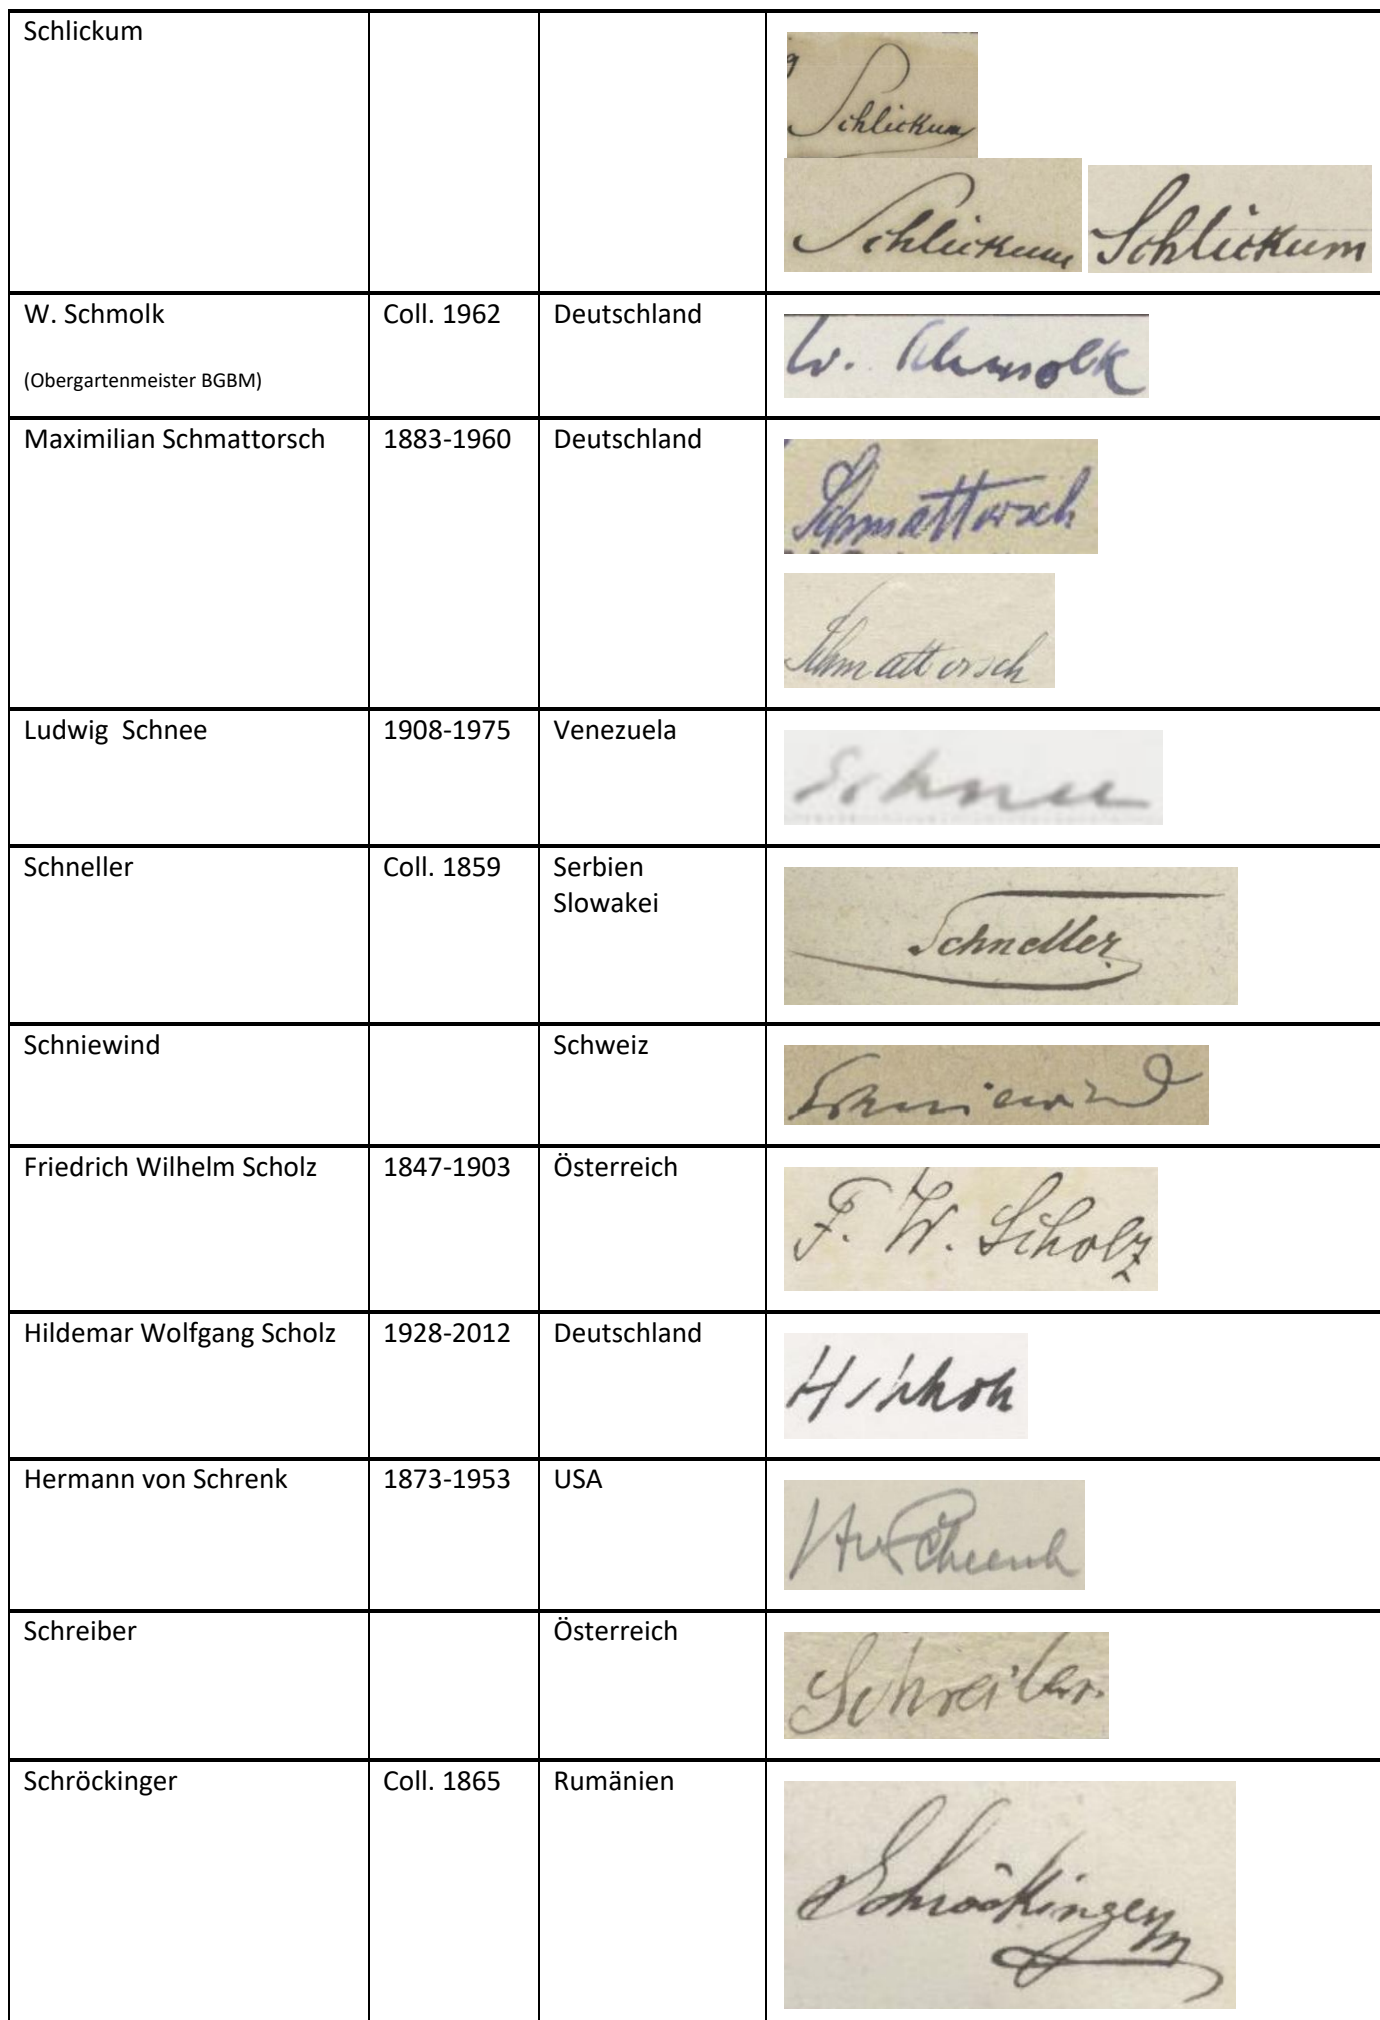 Schlickum
Schlickum
Schlickum Schlickum
W. Schmolk Coll. 1962 Deutschland W. Schmolk
(Obergartenmeister BGBM)
Maximilian Schmattorsch 1883-1960 Deutschland Schmattorsch
Schmattorsch
Ludwig Schnee 1908-1975 Venezuela Schnee
Schneller Coll. 1859 Serbien Schneller
Slowakei
Schniewind Schweiz Schniewind
Friedrich Wilhelm Scholz 1847-1903 Österreich F. W. Scholz
Hildemar Wolfgang Scholz 1928-2012 Deutschland H Scholz
Hermann von Schrenk 1873-1953 USA HvSchrenk
Schreiber Österreich Schreiber.
Schröckinger Coll. 1865 Rumänien Schröckinger